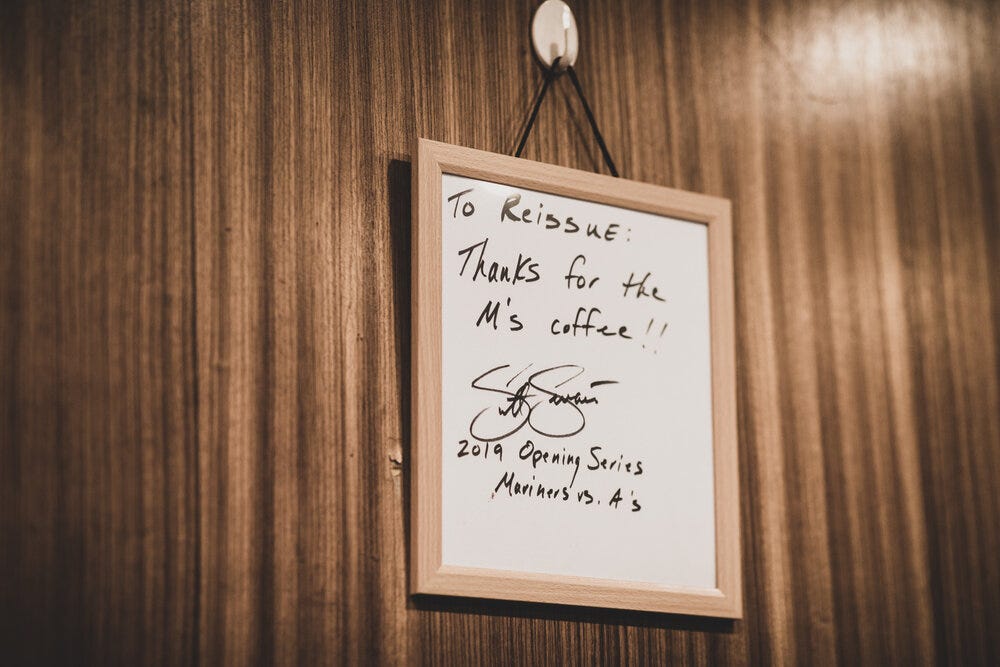 To Reissue:
Thanks for the
M's coffee!!
2019 Opening Series
Mariners vs. A's